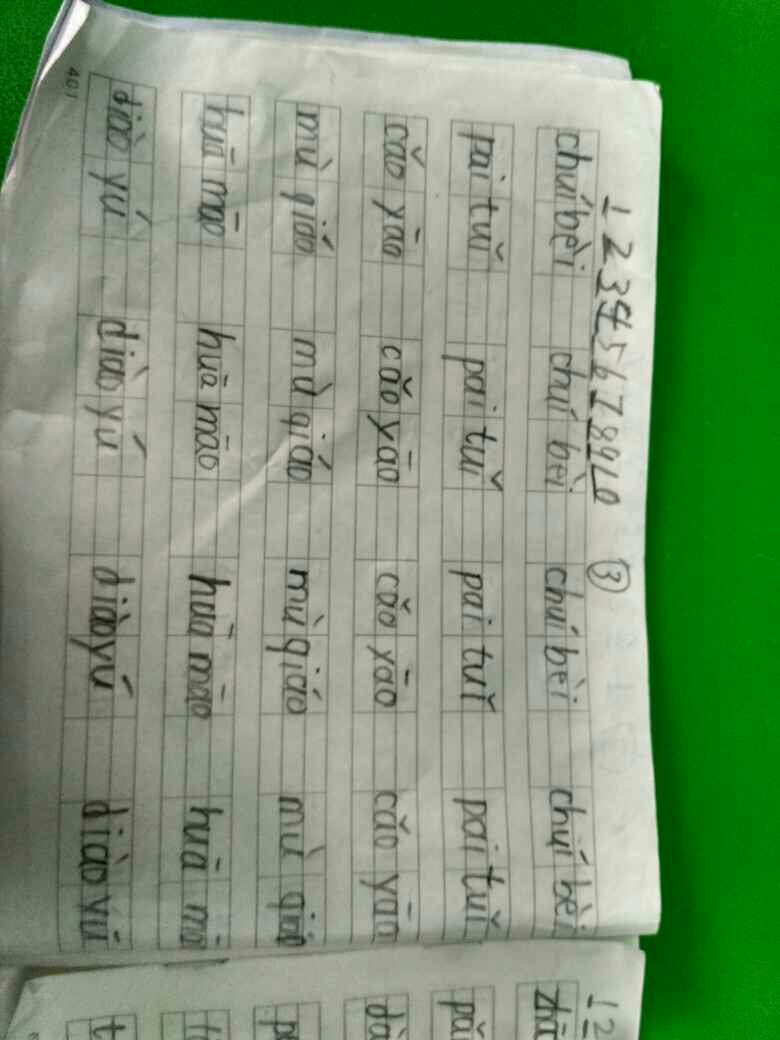 1 2 3 4 5 6 7 8 9 10 ③
chuí bèi chuí bèi chuí bèi chuí bèi
pai tuǐ pai tuǐ pai tuǐ pai tuǐ
cǎo yào cǎo yāo cǎo yāo cǎo yāo
mù qiáo mù qiáo mù qiáo mù qiáo
huā māo huā māo huā māo huā mā
diào yú diào yú diào yú diào yú
401
1 2